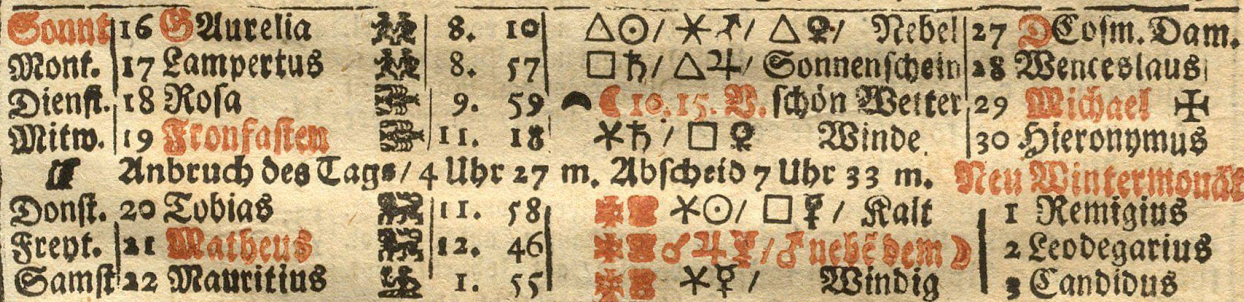 Sonnt 16 G Aurelia 8. 10 △☉/ ⚹♂/ △♀/ Nebel 27 D Cosm. Dam.
Mont. 17 Lampertus 8. 57 □♄/ △♃/ Sonnenschein 28 Wenceslaus
Dienst. 18 Rosa 9. 59 ☾ 10. 15. V. schön Wetter 29 Michael ✠
Mitw. 19 Fronfasten 11. 18 ⚹♄/ □♀ Winde 30 Hieronymus
Anbruch des Tags/ 4 Uhr 27 m. Abscheid 7 Uhr 33 m. Neu Wintermonat
Donst. 20 Tobias 11. 58 ⚹☉/ □☿/ Kalt 1 Remigius
Freyt. 21 Matheus 12. 46 ☌♃☿/ ♂ nebẽ dem ☽ 2 Leodegarius
Samst 22 Mauritius 1. 55 ⚹☿/ Windig 3 Candidus